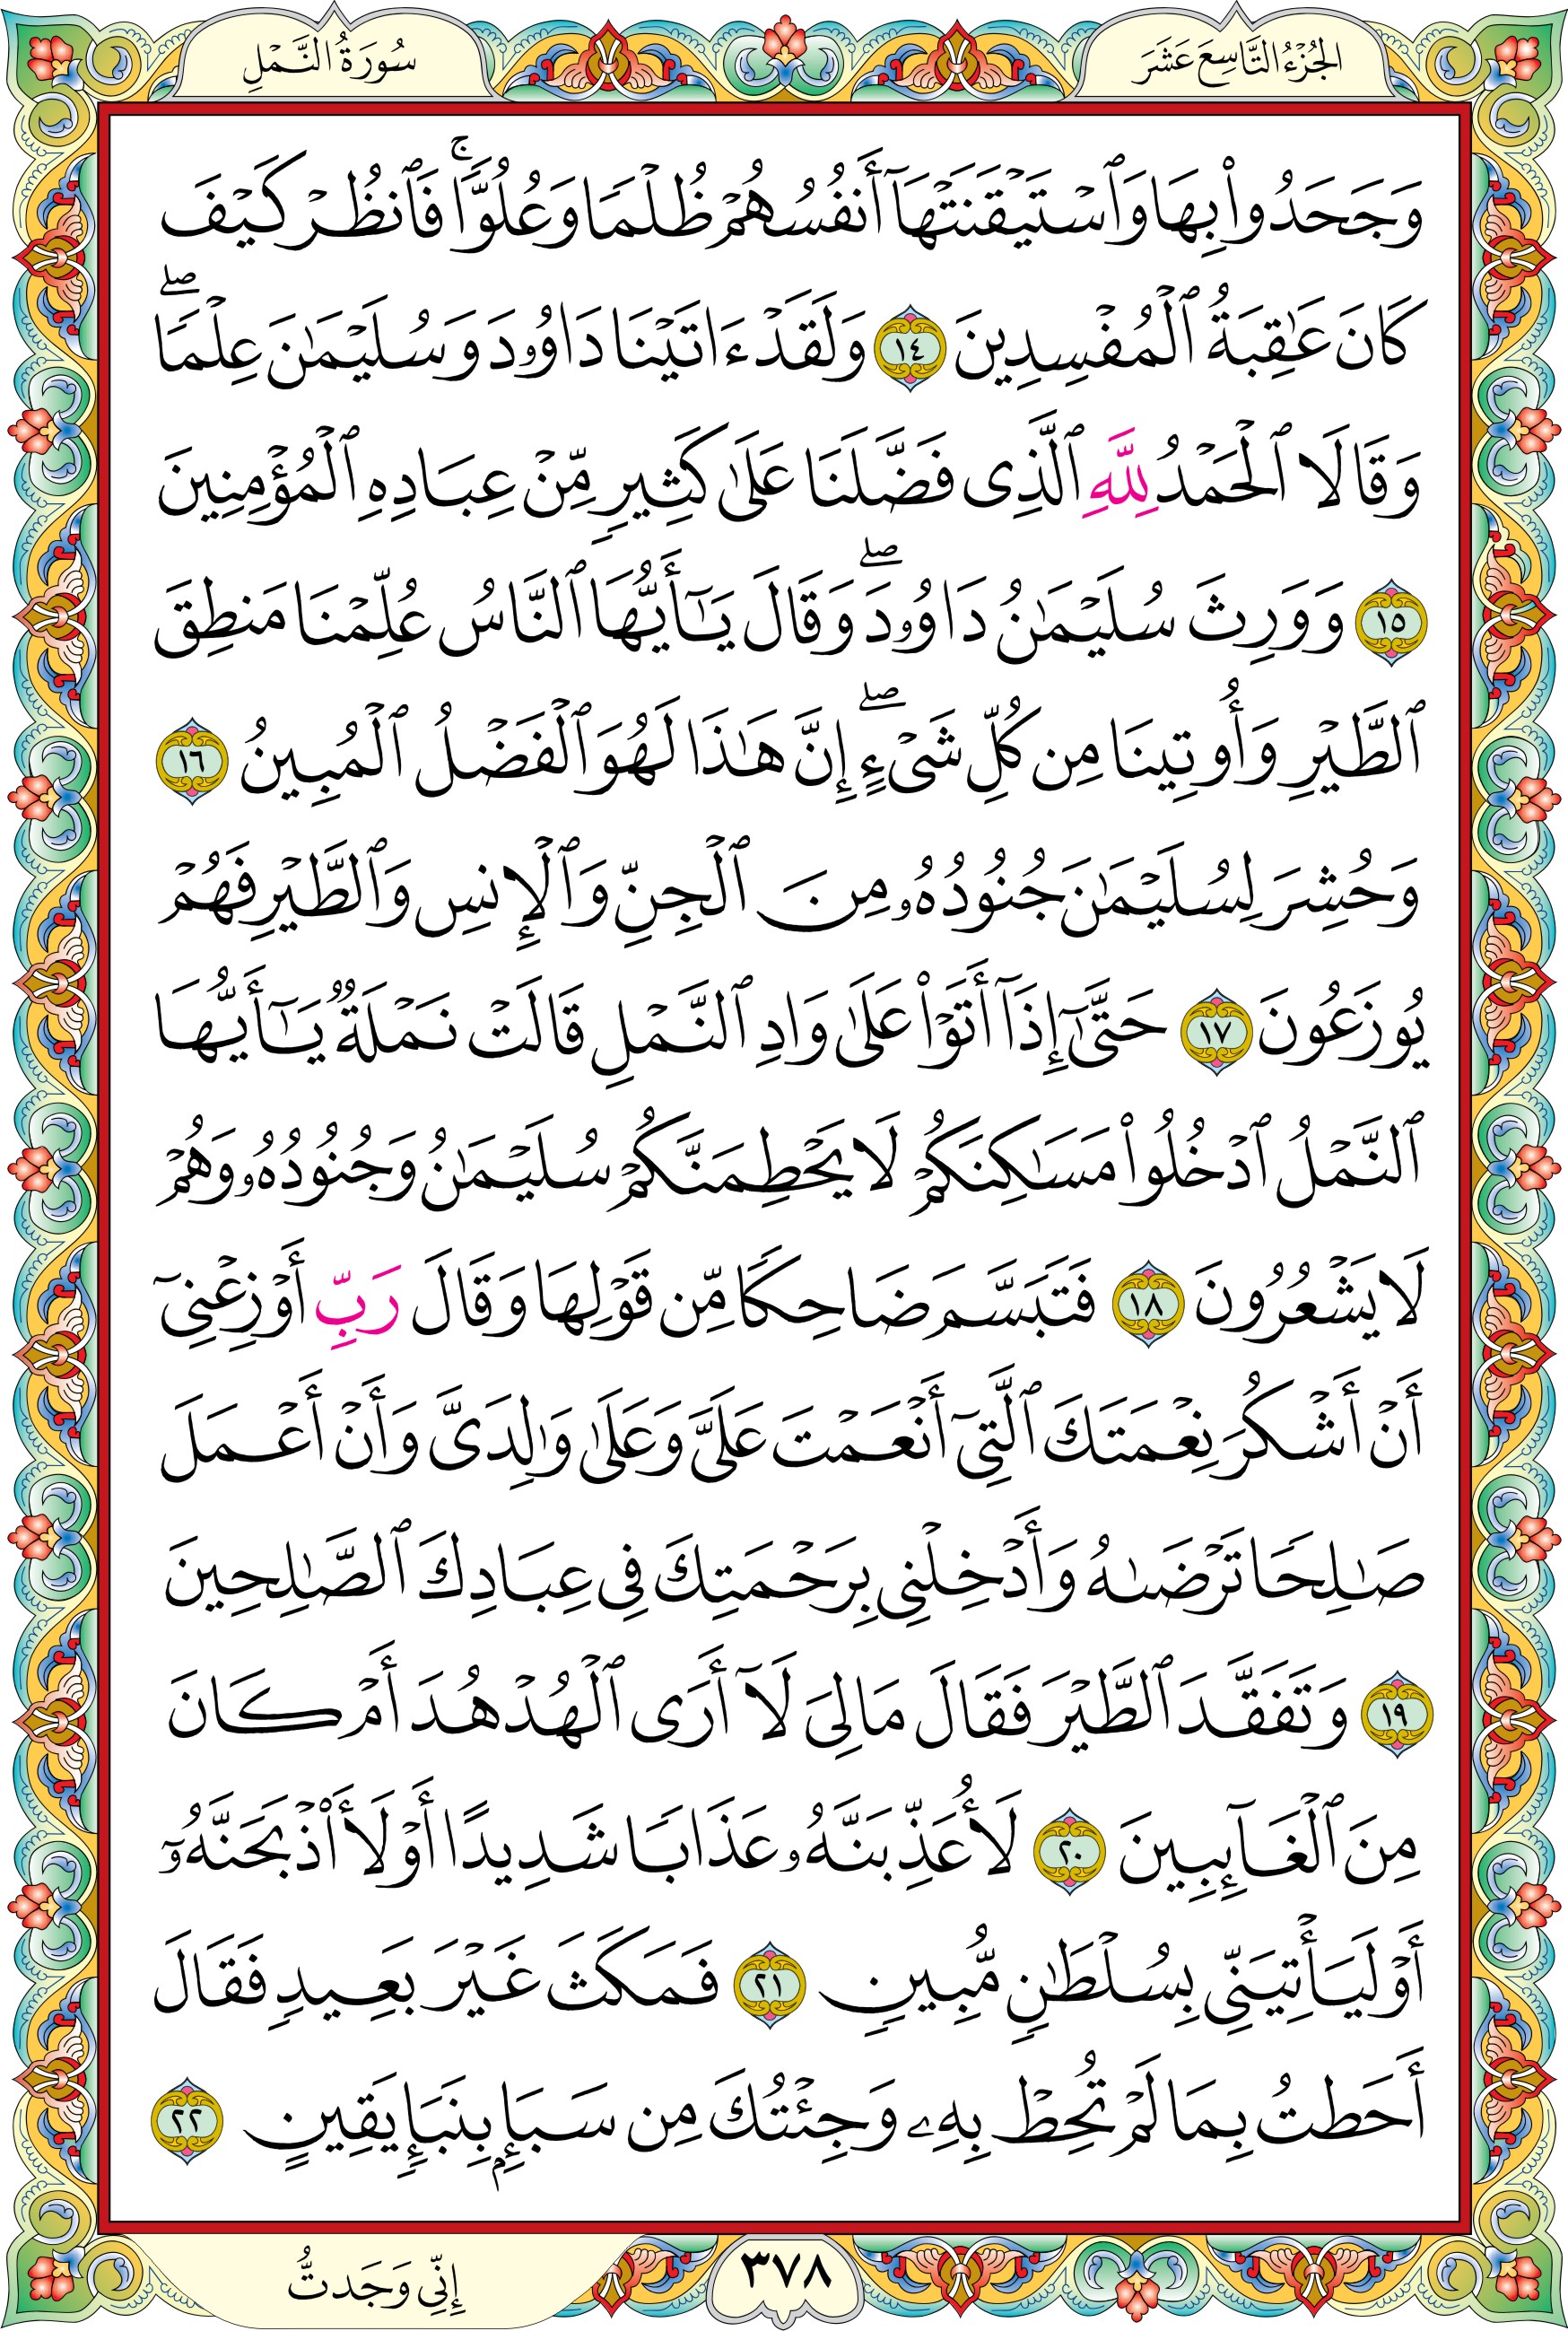 الجُزْءُ التَّاسِعَ عَشَرَ
سُورَةُ النَّمْلِ
وَجَحَدُوا۟ بِهَا وَٱسْتَيْقَنَتْهَآ أَنفُسُهُمْ ظُلْمًا وَعُلُوًّا ۚ فَٱنظُرْ كَيْفَ
كَانَ عَٰقِبَةُ ٱلْمُفْسِدِينَ ١٤ وَلَقَدْ ءَاتَيْنَا دَاوُۥدَ وَسُلَيْمَٰنَ عِلْمًا ۖ
وَقَالَا ٱلْحَمْدُ لِلَّهِ ٱلَّذِى فَضَّلَنَا عَلَىٰ كَثِيرٍ مِّنْ عِبَادِهِ ٱلْمُؤْمِنِينَ
١٥ وَوَرِثَ سُلَيْمَٰنُ دَاوُۥدَ ۖ وَقَالَ يَٰٓأَيُّهَا ٱلنَّاسُ عُلِّمْنَا مَنطِقَ
ٱلطَّيْرِ وَأُوتِينَا مِن كُلِّ شَىْءٍ ۖ إِنَّ هَٰذَا لَهُوَ ٱلْفَضْلُ ٱلْمُبِينُ ١٦
وَحُشِرَ لِسُلَيْمَٰنَ جُنُودُهُۥ مِنَ ٱلْجِنِّ وَٱلْإِنسِ وَٱلطَّيْرِ فَهُمْ
يُوزَعُونَ ١٧ حَتَّىٰٓ إِذَآ أَتَوْا۟ عَلَىٰ وَادِ ٱلنَّمْلِ قَالَتْ نَمْلَةٌ يَٰٓأَيُّهَا
ٱلنَّمْلُ ٱدْخُلُوا۟ مَسَٰكِنَكُمْ لَا يَحْطِمَنَّكُمْ سُلَيْمَٰنُ وَجُنُودُهُۥ وَهُمْ
لَا يَشْعُرُونَ ١٨ فَتَبَسَّمَ ضَاحِكًا مِّن قَوْلِهَا وَقَالَ رَبِّ أَوْزِعْنِىٓ
أَنْ أَشْكُرَ نِعْمَتَكَ ٱلَّتِىٓ أَنْعَمْتَ عَلَىَّ وَعَلَىٰ وَٰلِدَىَّ وَأَنْ أَعْمَلَ
صَٰلِحًا تَرْضَىٰهُ وَأَدْخِلْنِى بِرَحْمَتِكَ فِى عِبَادِكَ ٱلصَّٰلِحِينَ
١٩ وَتَفَقَّدَ ٱلطَّيْرَ فَقَالَ مَالِىَ لَآ أَرَى ٱلْهُدْهُدَ أَمْ كَانَ
مِنَ ٱلْغَآئِبِينَ ٢٠ لَأُعَذِّبَنَّهُۥ عَذَابًا شَدِيدًا أَوْ لَأَا۟ذْبَحَنَّهُۥٓ
أَوْ لَيَأْتِيَنِّى بِسُلْطَٰنٍ مُّبِينٍ ٢١ فَمَكَثَ غَيْرَ بَعِيدٍ فَقَالَ
أَحَطتُ بِمَا لَمْ تُحِطْ بِهِۦ وَجِئْتُكَ مِن سَبَإٍۭ بِنَبَإٍ يَقِينٍ ٢٢
٣٧٨
إِنِّي وَجَدتُّ